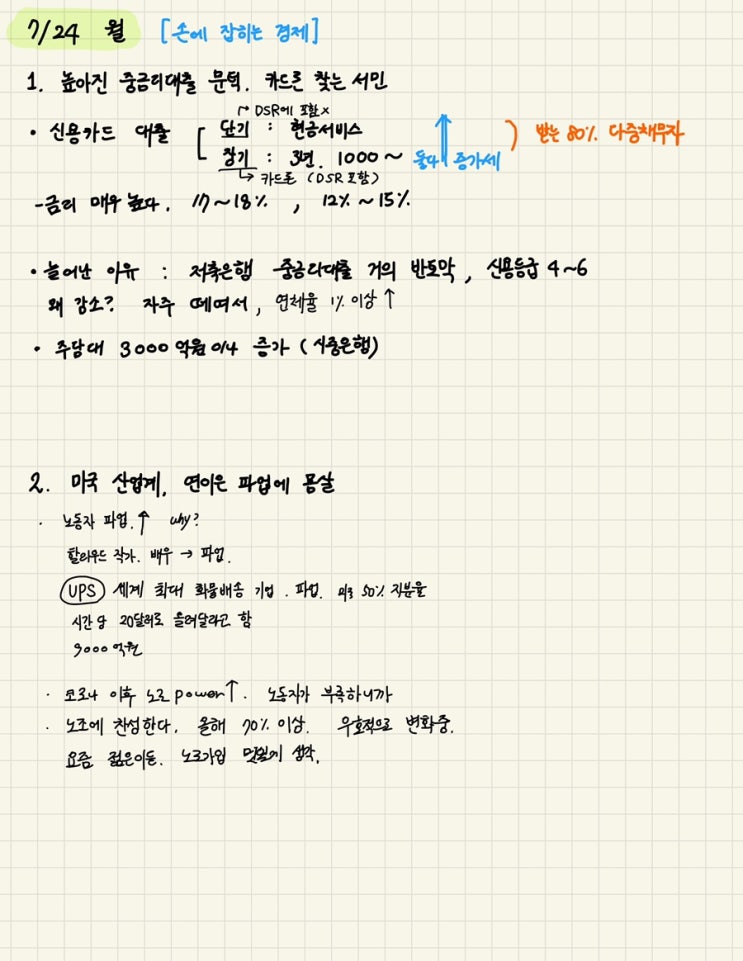 7/24 월 [손에 잡히는 경제]
1. 높아진 중금리대출 문턱. 카드론 찾는 서민
↱ DSR에 포함x
• 신용카드 대출 [ 단기 : 현금서비스
장기 : 3년. 1000~ 둘다 증가세 ) 받는 80% 다중채무자
↳ 카드론 (DSR 포함)
- 금리 매우 높다. 17~18% , 12%~15%
• 늘어난 이유 : 저축은행 중금리대출 거의 반토막, 신용등급 4~6
왜 감소? 자주 떼여서, 연체율 1% 이상↑
• 주담대 3000억원 이상 증가 (시중은행)
2. 미국 산업계, 연이은 파업에 몸살
· 노동자 파업.↑ why?
할리우드 작가. 배우 → 파업.
UPS 세계 최대 화물배송 기업. 파업. 50%
시간당 20달러로 올려달라고 함
9000억원
· 코로나 이후 노조 power↑. 노동자가 부족하니까
· 노조에 찬성한다. 올해 70% 이상. 우호적으로 변화중.
요즘 젊은이들. 노조가입 멋있게 생각.